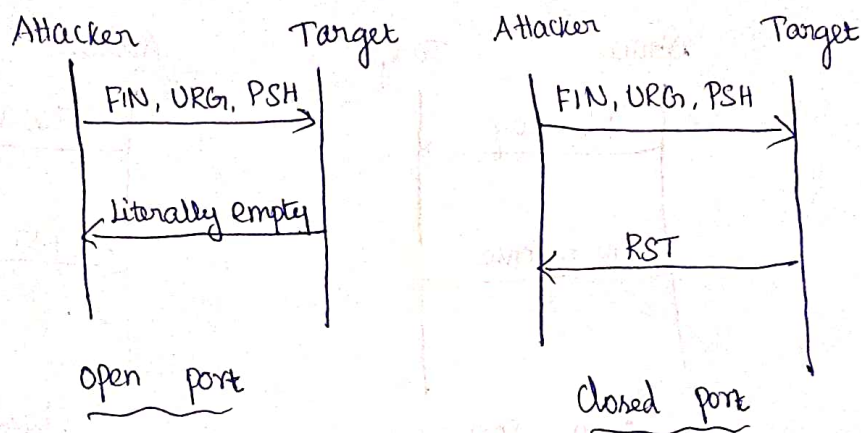 Attacker Target
FIN, URG, PSH
Literally empty
open port
Attacker Target
FIN, URG, PSH
RST
closed port